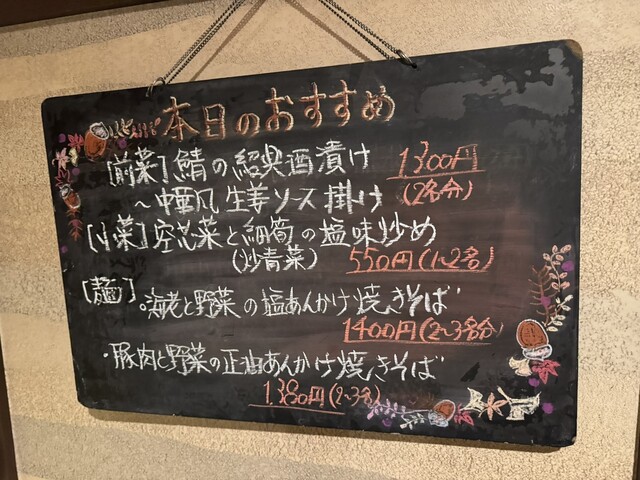 本日のおすすめ
[前菜]鯖の紹興酒漬け 1300円
〜中華風生姜ソース掛け (2名分)
[小菜]空芯菜と細筍の塩味炒め
(炒青菜) 550円(1〜2名)
[麺]
。海老と野菜の塩あんかけ焼きそば
1400円(2〜3名分)
・豚肉と野菜の正油あんかけ焼きそば
1.380円(2〜3名)